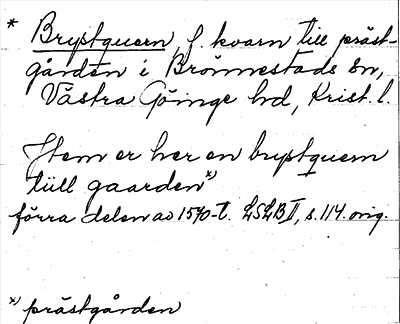 * Brystquern, f. kvarn till präst-
gården i Brönnestads sn,
Västra Göinge hd, Krist. l.
Item er her en brystquern
tüll gaarden x)
förra delen av 1570-t. LSLB II, s. 114. orig.
x) prästgården